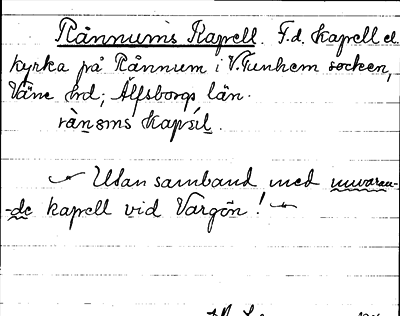 Rånnums Kapell. F.d. kapell el
kyrka på Rånnum i V. Tunhem socken,
Väne hd; Älfsborgs län.
rànsms kapsíl.
Utan samband med nuvaran-
-de kapell vid Vargön!